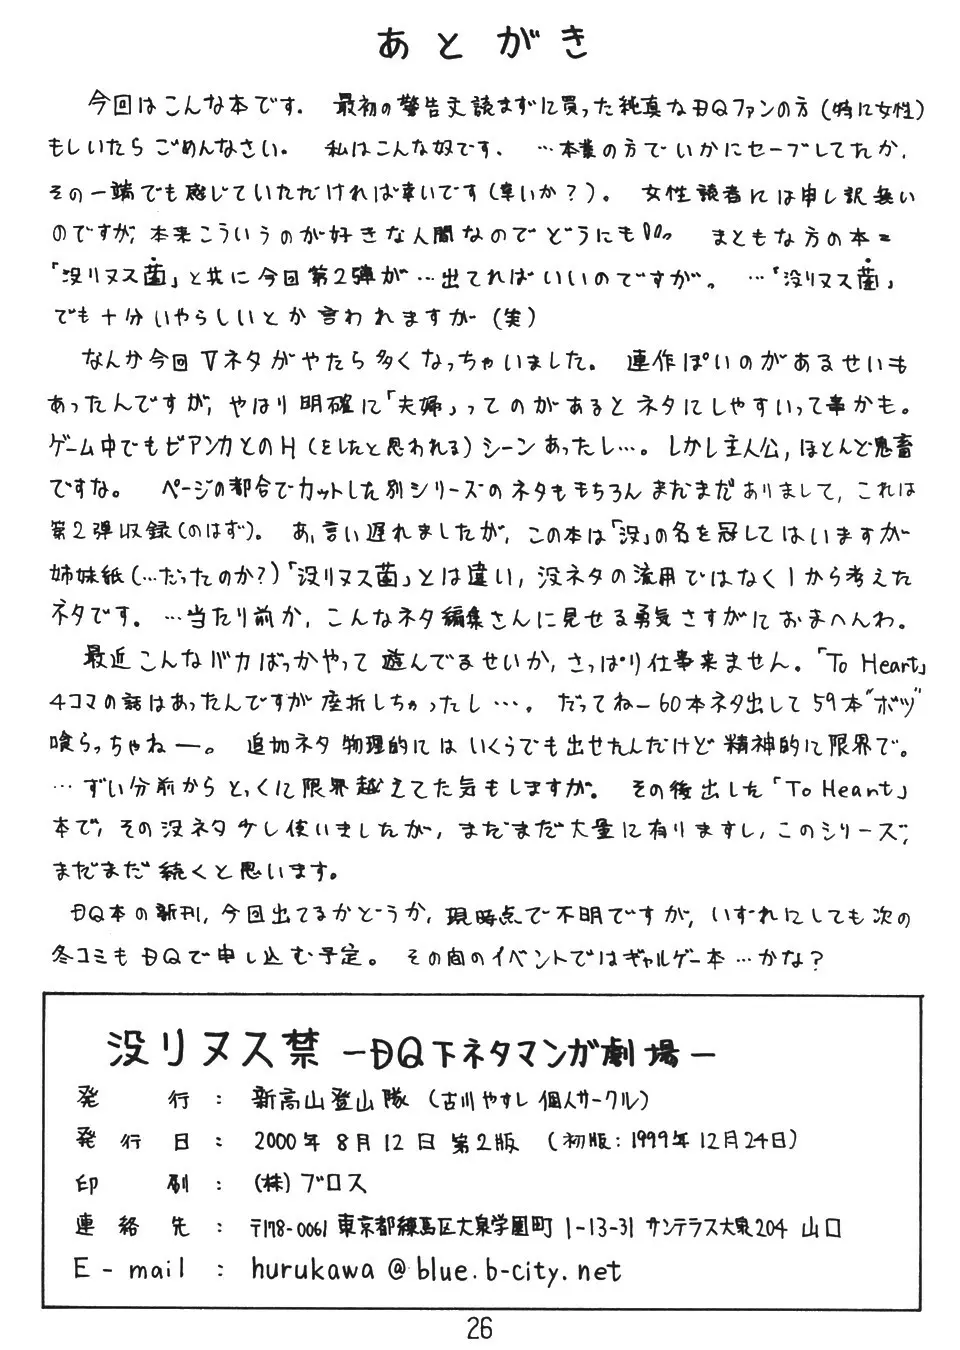 あとがき
今回はこんな本です。 最初の警告文読まずに買った純真なDQファンの方(特に女性)
もしいたらごめんなさい。 私はこんな奴です、 …本業の方でいかにセーブしてたか、
その一端でも感じていただければ幸いです(幸いか?)。 女性読者には申し訳無い
のですが、本来こういうのが好きな人間なのでどうにも〃〃。 まともな方の本=
「没リヌス菌」と共に今回第2弾が…出てればいいのですが。 …「没リヌス菌」
でも十分いやらしいとか言われますが(笑)
なんか今回Ⅴネタがやたら多くなっちゃいました。 連作ぽいのがあるせいも
あったんですが、やはり明確に「夫婦」ってのがあるとネタにしやすいって事かも。
ゲーム中でもビアンカとのH(をしたと思われる)シーンあったし…。しかし主人公,ほとんど鬼畜
ですな。 ページの都合でカットした別シリーズのネタももちろんまだまだありまして,これは
第2弾収録(のはず)。 あ,言い遅れましたが、この本は「没」の名を冠してはいますが
姉妹紙(…だったのか?)「没リヌス菌」とは違い,没ネタの流用ではなく1から考えた
ネタです。 …当たり前か,こんなネタ編集さんに見せる勇気さすがにおまへんわ。
最近こんなバカばっかやって遊んでるせいか,さっぱり仕事来ません。「To Heart」
4コマの話はあったんですが座折しちゃったし…。 だってねー60本ネタ出して59本"ボツ"
喰らっちゃねー。 追加ネタ物理的にはいくらでも出せたんだけど精神的に限界で。
…ずい分前からとっくに限界越えてた気もしますが。 その後出した「To Heart」
本で,その没ネタ少し使いましたが,まだまだ大量に有りますし,このシリーズ,
まだまだ続くと思います。
DQ本の新刊,今回出てるかどうか,現時点で不明ですが,いずれにしても次の
冬コミもDQで申し込む予定。 その間のイベントではギャルゲー本…かな?
没リヌス禁 ーDQ下ネタマンガ劇場ー
発行: 新高山登山隊 (古川やすし個人サークル)
発行日: 2000年8月12日 第2版 (初版:1999年12月24日)
印刷: (株)ブロス
連絡先: 〒178-0061 東京都練馬区大泉学園町1-13-31 サンテラス大泉204 山口
E-mail : hurukawa@blue.b-city.net
26